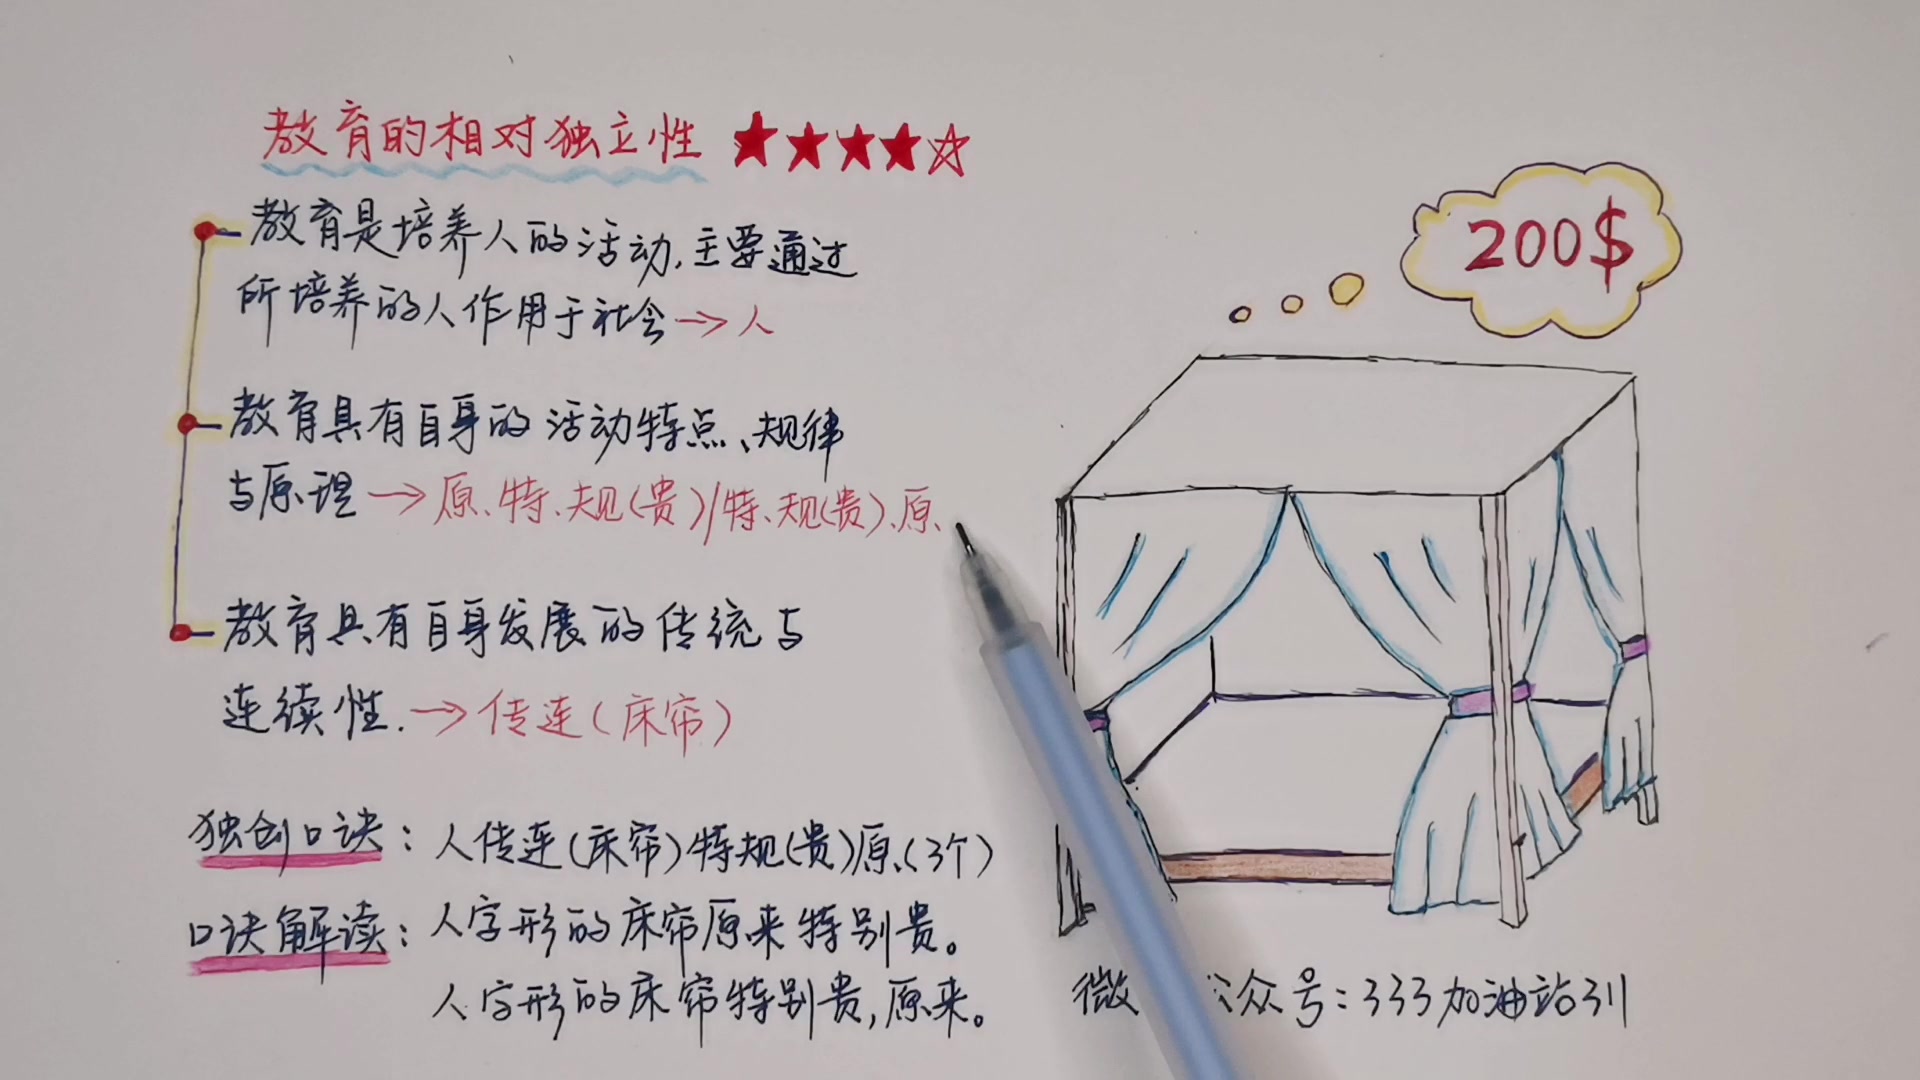 教育的相对独立性 ★★★★☆
教育是培养人的活动,主要通过
所培养的人作用于社会→人
教育具有自身的活动特点、规律
与原理→原、特、规(贵)/特、规(贵)、原、
教育具有自身发展的传统与
连续性.→传连(床帘)
独创口诀:人传连(床帘)特规(贵)原(3个)
口诀解读:人字形的床帘原来特别贵。
人字形的床帘特别贵,原来。
200$
微 公众号:333加油站311